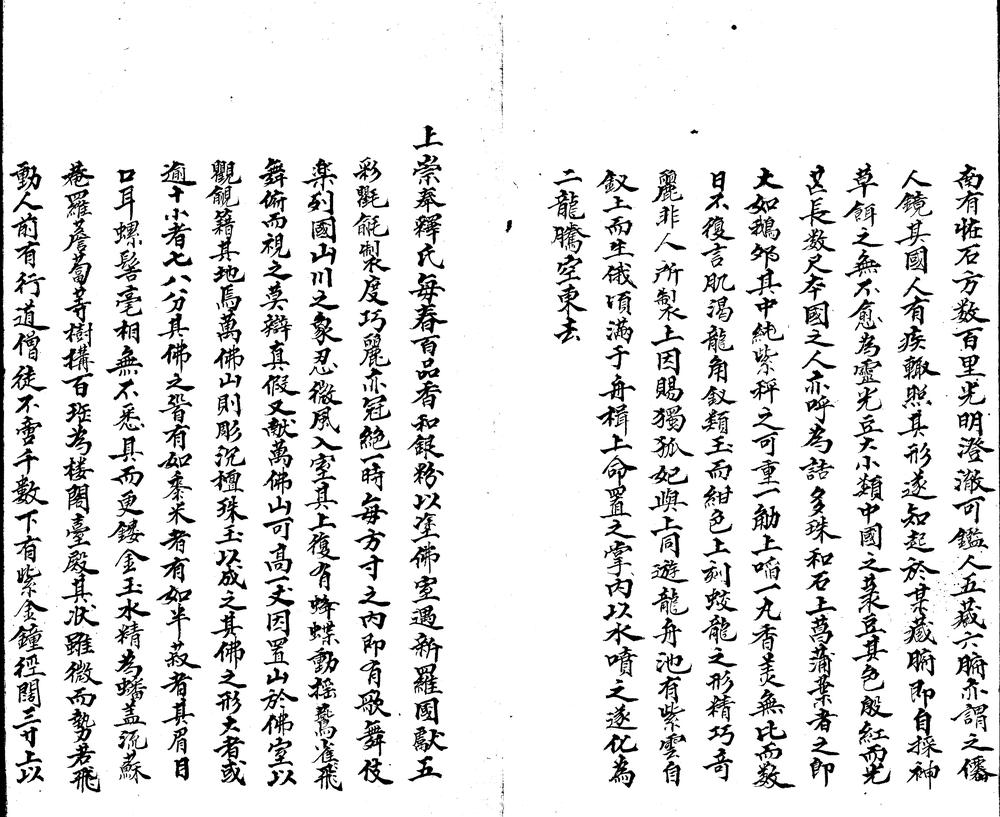 南有恠石方数百里光明澄澈可鑑人五藏六腑亦謂之僊
人鏡其國人有疾輙照其形遂知起於某藏腑即自採神
草餌之無不愈為靈光豆大小類中國之菉豆其色殷紅而光
芒長数尺夲國之人亦呼為詰多珠和石上菖蒲葉者之即
大如鵝夘其中純紫秤之可重一觔上啗一丸香羙無比而数
日不復言肌渴龍角釵類玉而紺色上刻蛟龍之形精巧竒
麗非人所製上因賜獨孤妃與上同遊龍舟池有紫雲自
釵上而生俄頃滿于舟楫上命置之掌内以水噴之遂化為
二龍騰空東去
上崇奉釋氏每春百品香和銀粉以塗佛室遇新羅國獻五
彩氍毹製度巧麗亦冠絕一時每方寸之内即有歌舞伎
楽列國山川之象忍微風入室其上復有蜂蝶動摇鷰雀飛
舞俯而視之莫辯真假又献萬佛山可高一丈因置山於佛室以
氍毹籍其地焉萬佛山則彫沉檀珠玉以成之其佛之形大者或
逾十小者七八分其佛之首有如黍米者有如半菽者其眉目
口耳螺髻毫相無不悉具而更鏤金玉水精為蟠盖流蘇
菴羅薝蔔等樹搆百珤為楼閣臺殿其状雖微而勢若飛
動人前有行道僧徒不啻千数下有紫金鐘徑闊三寸上以